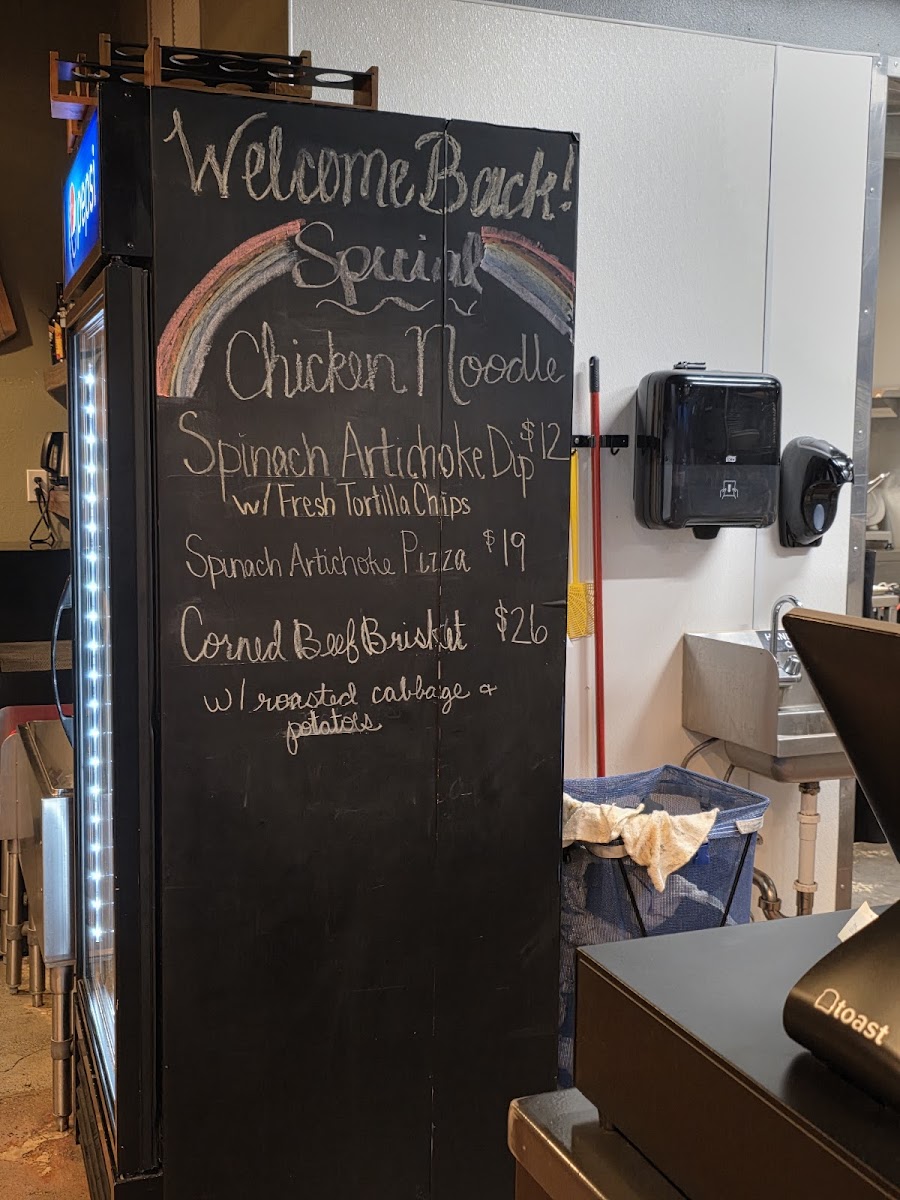 Welcome Back!
Special
Chicken Noodle
Spinach Artichoke Dip $12
w/ Fresh Tortilla Chips
Spinach Artichoke Pizza $19
Corned Beef Brisket $26
w/ roasted cabbage +
potatoes
pepsi
toast